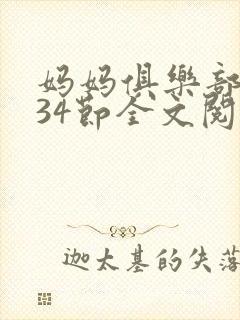 妈妈俱樂部
34節全文閱
迦太基的失落